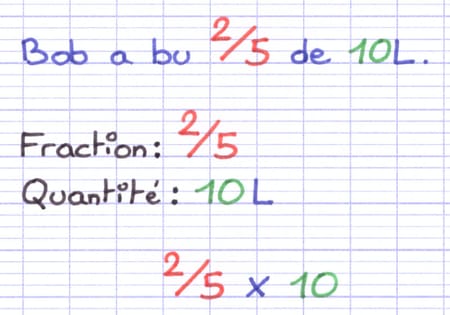 Bob a bu 2/5 de 10L.
Fraction: 2/5
Quantité: 10L
2/5 x 10